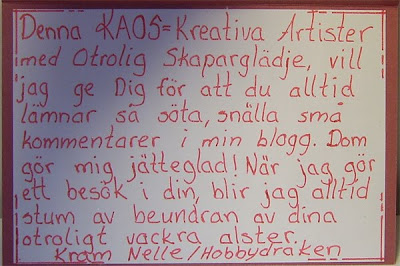 Denna KAOS=Kreativa Artister
med Otrolig Skaparglädje, vill
jag ge Dig för att du alltid
lämnar så söta, snälla små
kommentarer i min blogg. Dom
gör mig jätteglad! När jag gör
ett besök i din, blir jag alltid
stum av beundran av dina
otroligt vackra alster.
Kram Nelle/Hobbydraken